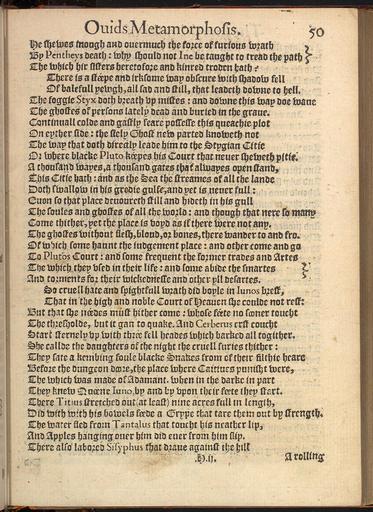 Ouids Metamorphosis. 50
He shewes inough and ouermuch the force of furious wrath
By Pentheys death: why should not Ine be taught to tread the path
The which hir sisters heretofore and kinred troden hath?
There is a steepe and irksome way obscure with shadow fell
Of balefull yewgh, all sad and still, that leadeth downe to hell.
The foggie Styx doth breath vp mistes: and downe this way doe waue
The ghostes of persons lately dead and buried in the graue.
Continuall colde and gastly feare possesse this queachie plot
On eyther side: the siely Ghost new parted knoweth not
The way that doth directly leade him to the Stygian Citie
Or where blacke Pluto keepes his Court that neuer sheweth pitie.
A thousand wayes, a thousand gates that alwayes open stand,
This Citie hath: and as the Sea the streames of all the lande
Doth swallow in his gredie gulfe, and yet is neuer full:
Euen so that place deuoureth still and hideth in his gull
The soules and ghostes of all the world: and though that nere so many
Come thither, yet the place is voyd as if there were not any.
The ghostes without flesh, bloud, or bones, there wander to and fro.
Of which some haunt the iudgement place: and other come and go
To Plutos Court: and some frequent the former trades and Artes
The which they vsed in their life: and some abide the smartes
And torments for their wickednesse and other yll desartes.
So cruell hate and spightfull wrath did boyle in Iunos brest,
That in the high and noble Court of Heauen she coulde not rest:
But that she needes must hither come: whose feete no sooner toucht
The thresholde, but it gan to quake. And Cerberus erst coucht
Start sternely vp with three fell heades which barked all togither.
She callde the daughters of the night the cruell furies thither:
They sate a kembing foule blacke Snakes from of their filthie heare
Before the dungeon doore, the place where Caitiues punisht were,
The which was made of Adamant. when in the darke in part
They knew Queene Iuno, by and by vpon their feete they start.
There Titius stretched out (at least) nine acres full in length,
Did with with his bowels feede a Grype that tare them out by strength.
The water fled from Tantalus that toucht his neather lip,
And Apples hanging ouer him did euer from him slip.
There also labored Sisyphus that draue against the hill
H.ij. A rolling